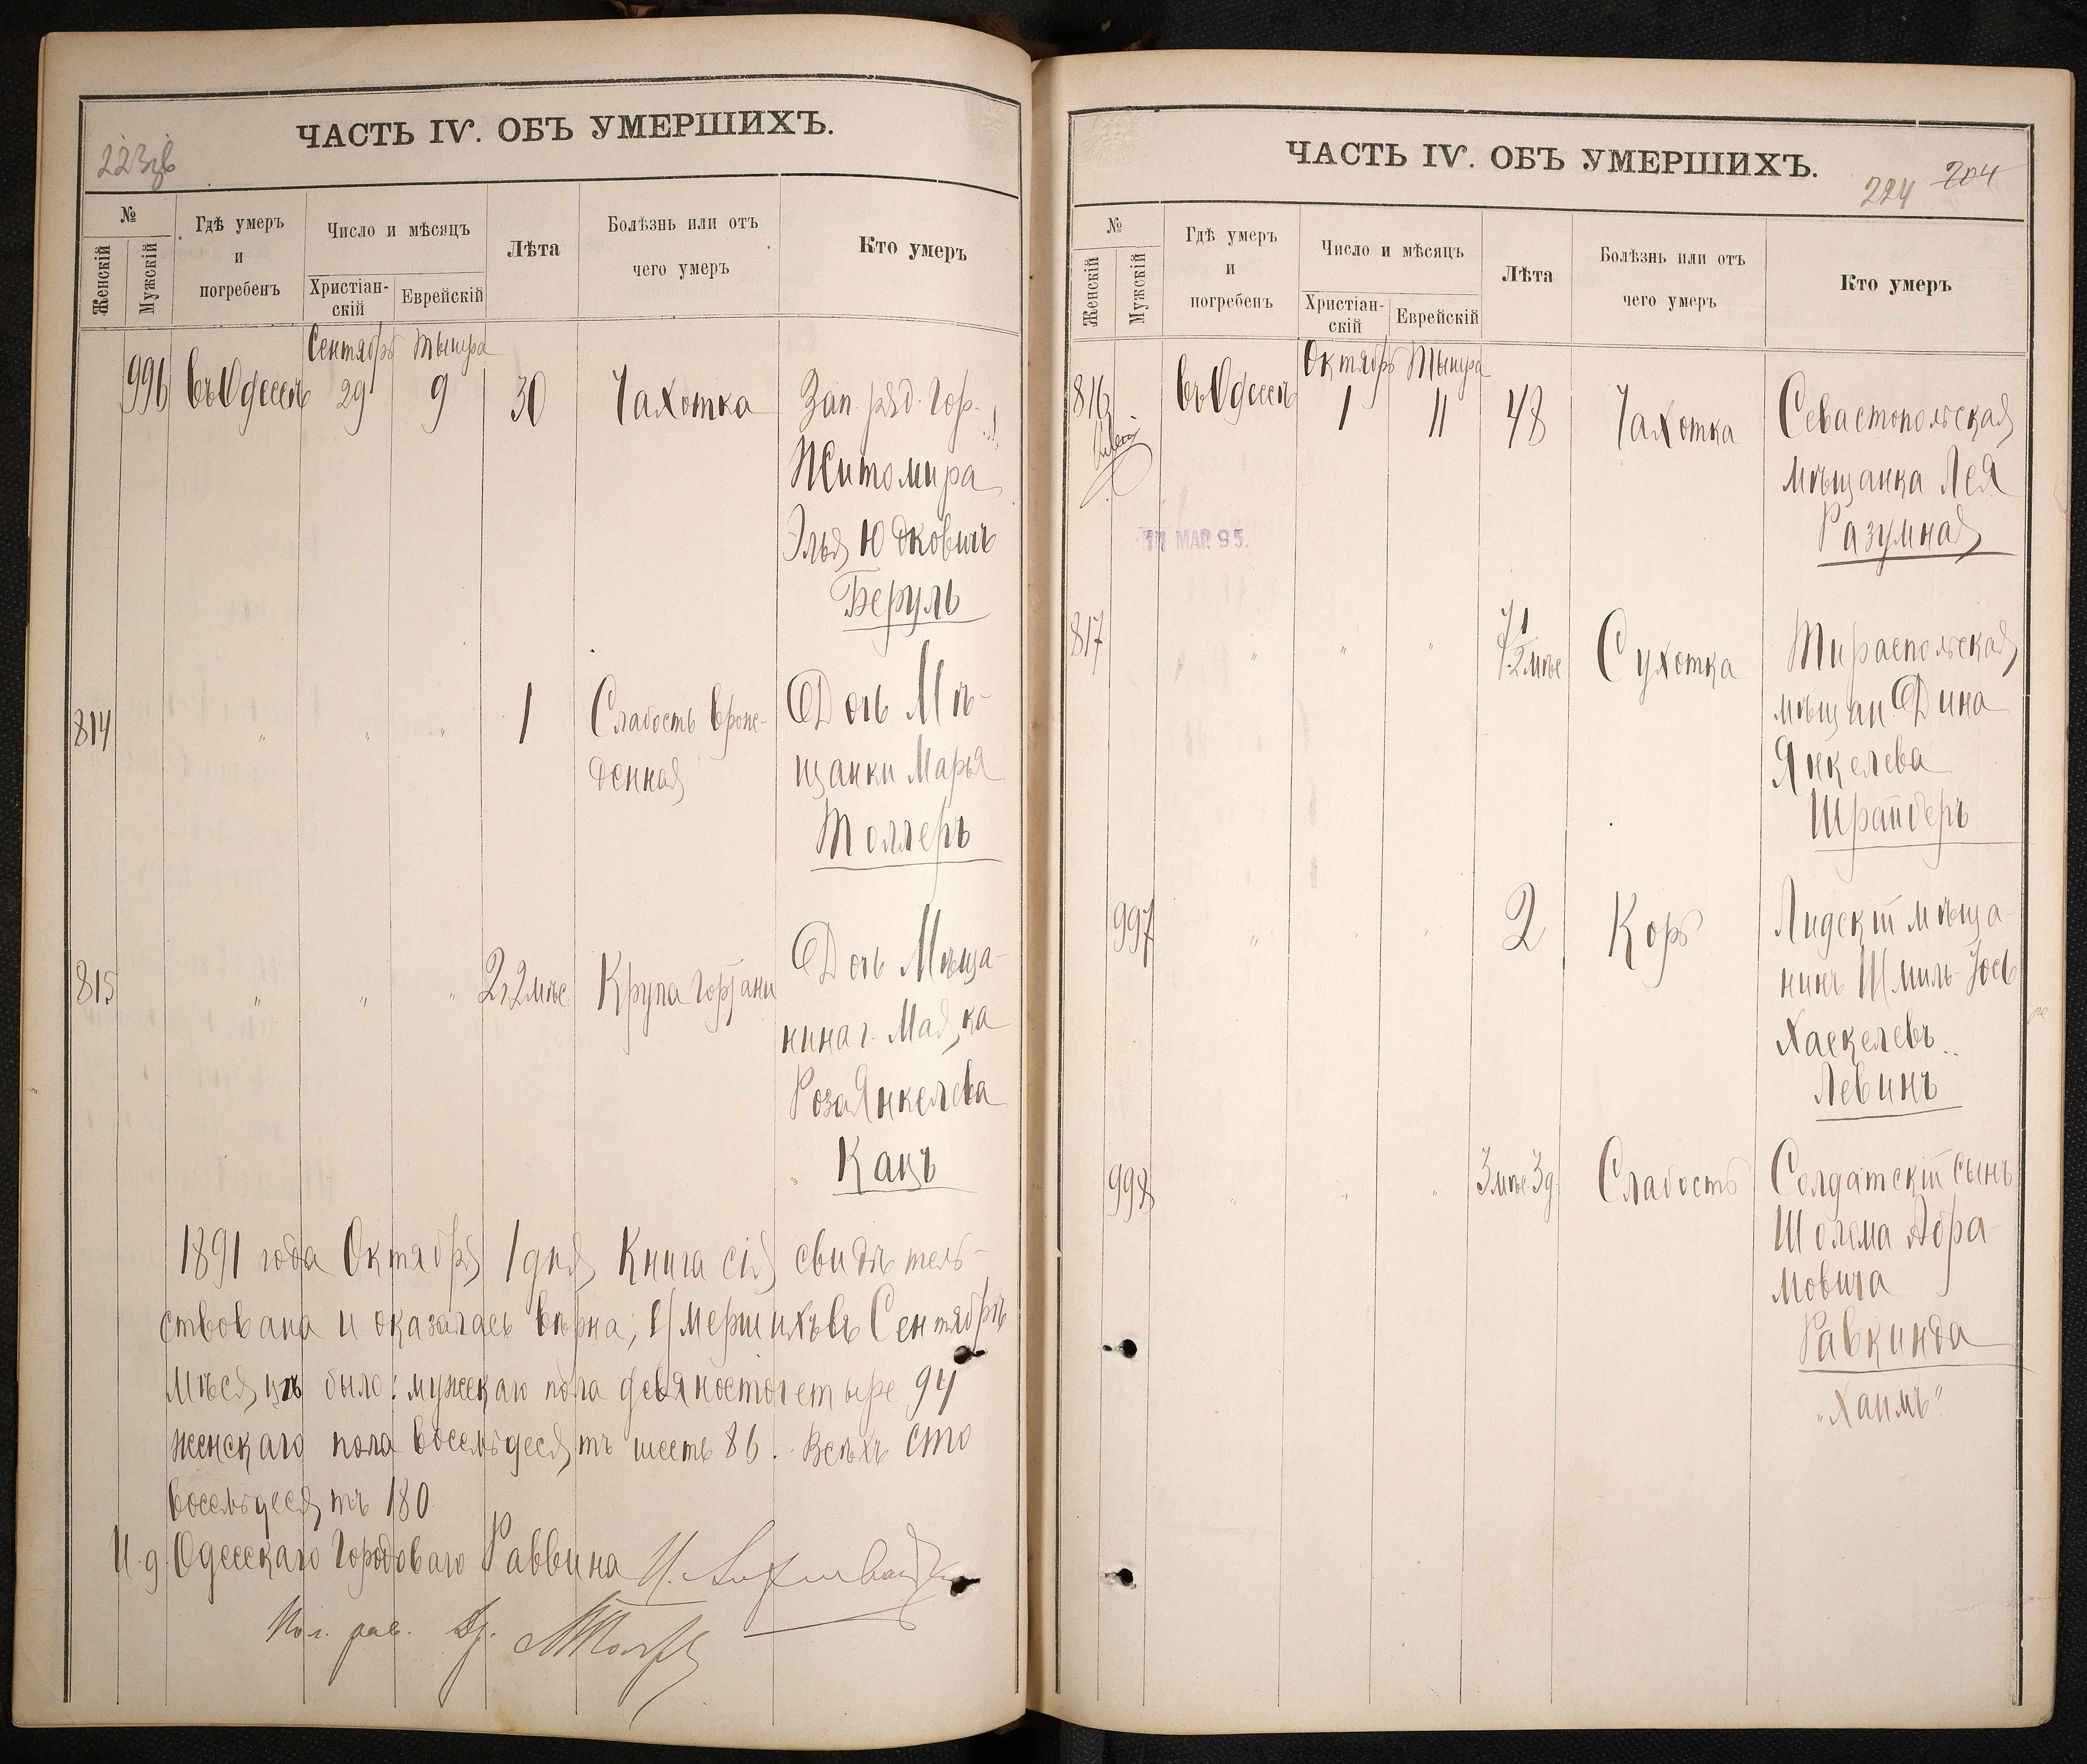 ЧАСТЬ IV. ОБЪ УМЕРШИХЪ.
223об
№
Женскій
Мужскій
Гдѣ умеръ
и
погребенъ
Число и мѣсяцъ
Христіан-
скій
Еврейскій
Лѣта
Болѣзнь или отъ
чего умеръ
Кто умеръ
Сентябрь Тышра
996 въ Одессѣ 29 9 30 Чахотка Зап. ряд. гор.
Житомира
Элья Юдковичъ
Беруль
814 " " " 1 Слабость врож-
денная
Дочь Мѣ-
щанки Марья
Толлеръ
815 " " " 2 г. 2 мѣс. Крупа гортани
Дочь Мѣща-
нина г. Маяка
Роза Янкелева
Кацъ
1891 года Октября 1 дня Книга сія свидѣтель-
ствована и оказалась вѣрна; Умершихъ въ Сентябрѣ
мѣсяцѣ было: мужскаго пола девяносто четыре 94
женскаго пола восемьдесятъ шесть 86. Всѣхъ сто
восемьдесятъ 180
И. д. Одесскаго Городоваго Раввина
Пом. рав. Др.
ЧАСТЬ IV. ОБЪ УМЕРШИХЪ.
224 204
№
Женскій
Мужскій
Гдѣ умеръ
и
погребенъ
Число и мѣсяцъ
Христіан-
скій
Еврейскій
Лѣта
Болѣзнь или отъ
чего умеръ
Кто умеръ
Октябрь Тышра
816 въ Одессѣ 1 11 48 Чахотка Севастопольская
мѣщанка Лея
Разумная
17 МАР. 95.
817 " " " Сухотка Тираспольская
мѣщан. Дина
Янкелева
Шрайберъ
997 " " " 2 Корь Лидскій мѣща-
нинъ Шмиль-Іось
Хаскелевъ
Левинъ
998 " " " 3 мѣс. 3 д. Слабость Солдатскій сынъ
Шолома Абра-
мовича
Равкинда
"Хаимъ"